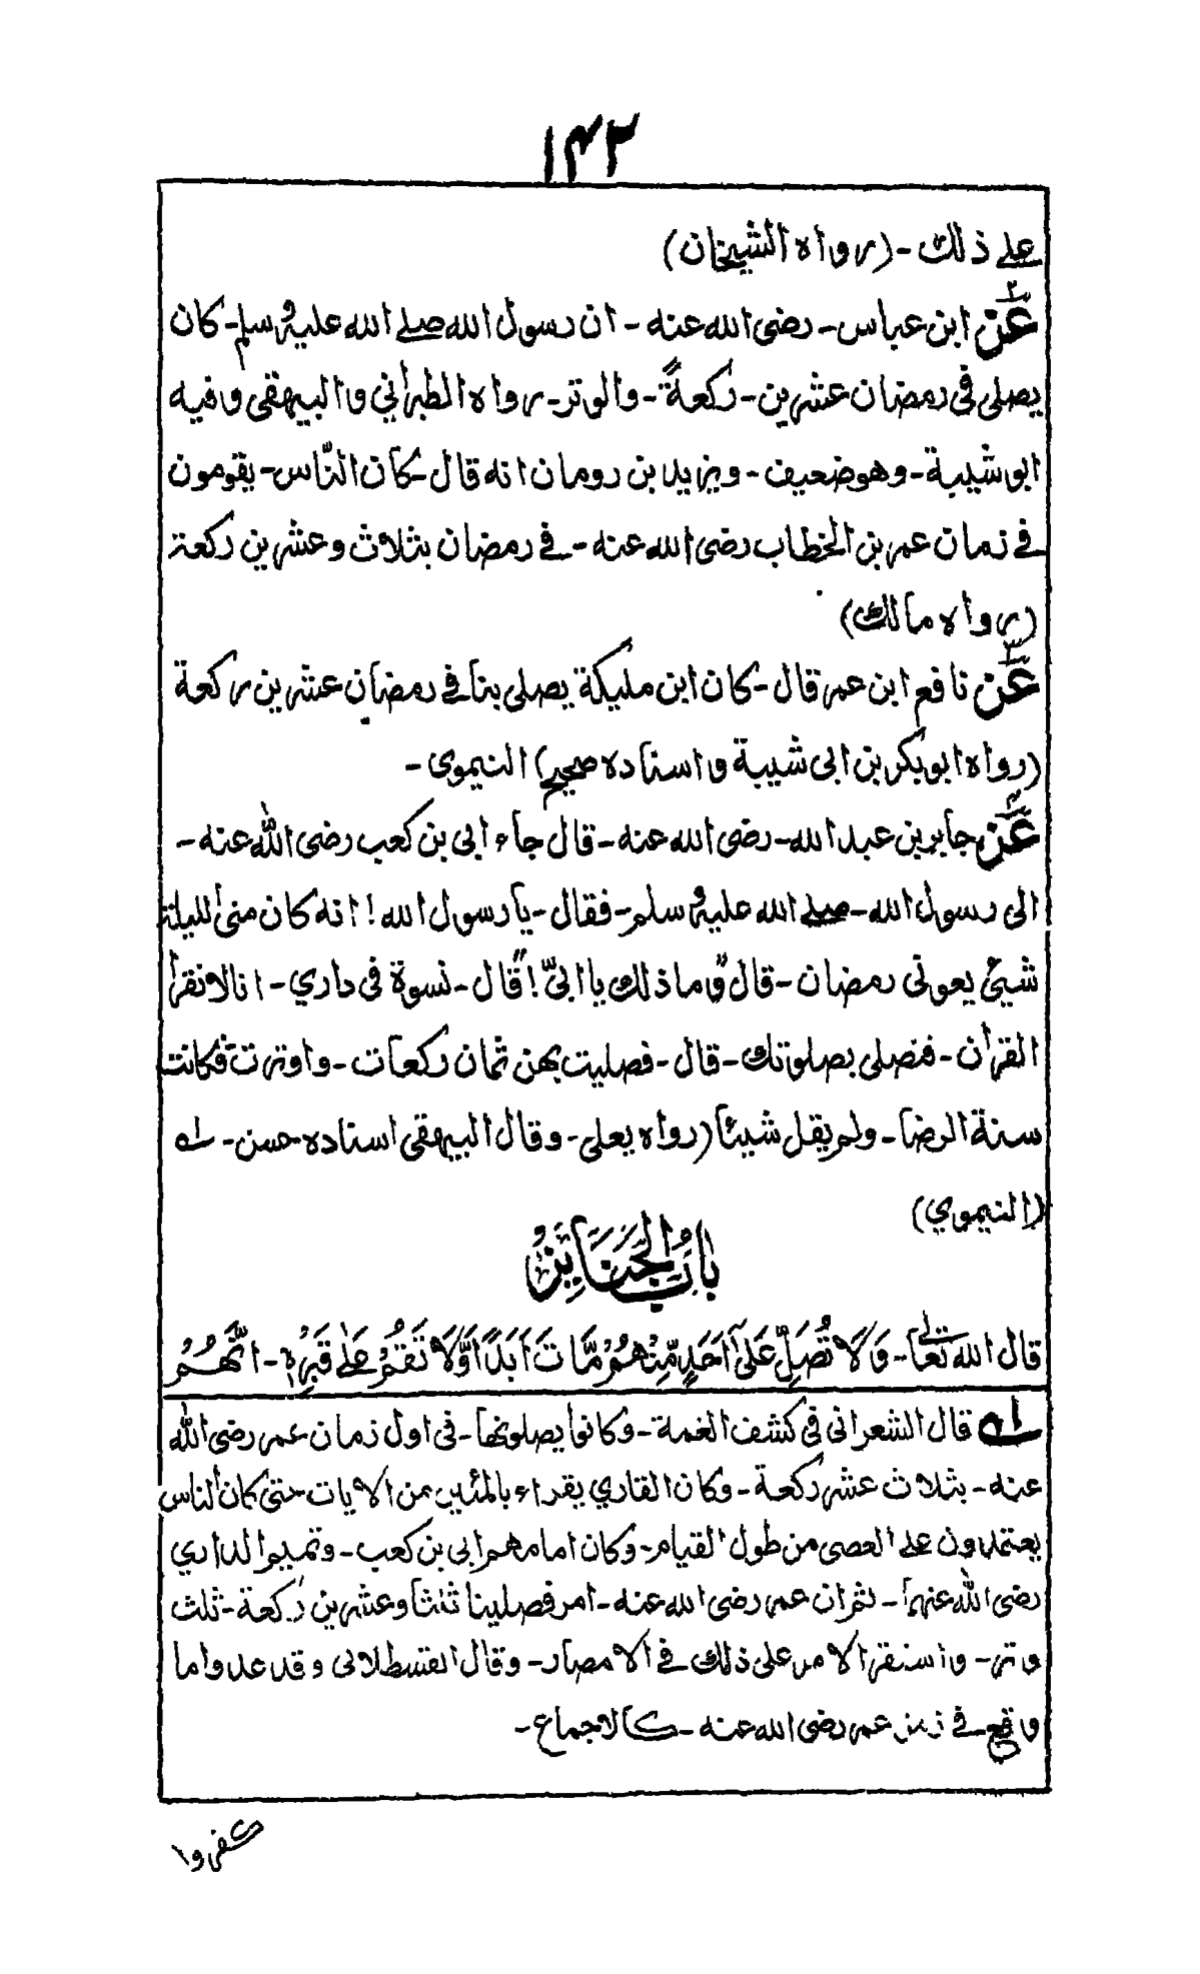 ١٤٢
علے ذلك - (رواه الشيخان)
٢ عن ابن عباس - رضى الله عنه - ان رسول الله صلے الله عليه وسلم - كان
يصلى فى رمضان عشرين - ركعةً - والوتر - رواه الطبرانى والبيهقى وفيه
ابو شيبة - وهو ضعيف - ويزيد بن رومان انه قال - كان النّاس - يقومون
فے زمان عمر بن الخطاب رضى الله عنه - فے رمضان بثلاث وعشرين ركعة
(رواه مالك)
٣ عن نافع ابن عمر قال - كان ابن مليكة يصلى بنا فے رمضان عشرين ركعة
(رواه ابو بكر بن ابى شيبة واسناده صحيح) النيموى -
٤ عن جابر بن عبد الله - رضى الله عنه - قال جاء ابى بن كعب رضى الله عنه -
الى رسول الله - صلے الله عليه وسلم - فقال - يا رسول الله! انه كان منى الليلة
شيئ يعونى رمضان - قال وما ذلك يا ابىّ! قال - نسوة فى داري - انا لا نقرأ
القرأن - فنصلى بصلوتك - قال - فصليت بهن ثمان ركعات - واوترت فكانت
سنة الرضا - ولم يقل شيئا (رواه يعلى - وقال البيهقى اسناده حسن - له
(النيموي)
بابُ الجَنَائِزُ
قال الله تعالٰى - وَلَا تُصَلِّ عَلٰٓى اَحَدٍ مِّنْهُمْ مَّاتَ اَبَدًا وَّلَا تَقُمْ عَلٰے قَبْرِهٖ - اِنَّهُمْ
له قال الشعرانى فى كشف الغمة - وكانوا يصلونها - فى اول زمان عمر رضى الله
عنه - بثلاث عشر ركعة - وكان القاري يقراء بالمئين من الايات حتى كان الناس
يعتمدون علے العصى من طول القيام - وكان امامهم ابى بن كعب - وتميم الدارى
رضى الله عنهما - ثم ان عمر رضى الله عنه - امر فصلينا ثلثا وعشرين ركعة - ثلث
وتر - واستقر الامر على ذلك فے الامصار - وقال القسطلانى وقد عدوا ما
وقع فے زمن عمر رضى الله عنه - كالاجماع -
كفروا